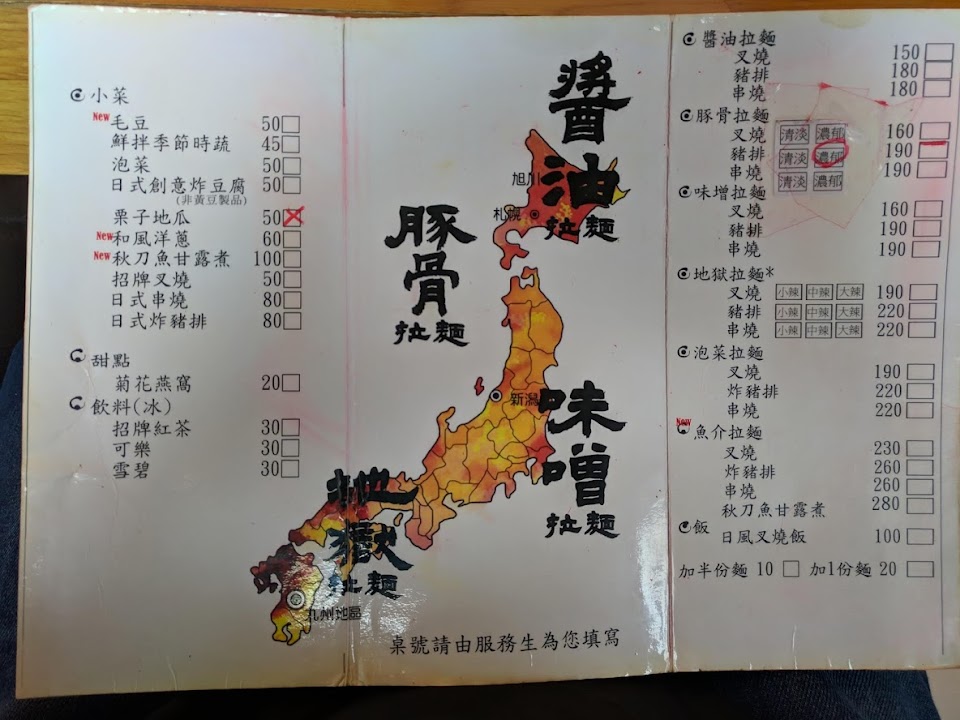 小菜
New 毛豆 50
鮮拌季節時蔬 45
泡菜 50
日式創意炸豆腐 50
(非黃豆製品)
栗子地瓜 50
New 和風洋蔥 60
New 秋刀魚甘露煮 100
招牌叉燒 50
日式串燒 80
日式炸豬排 80
甜點
菊花燕窩 20
飲料(冰)
招牌紅茶 30
可樂 30
雪碧 30
醬油
拉麵
旭川
札幌
豚骨
拉麵
新潟
味噌
拉麵
地獄
拉麵
九州地區
桌號請由服務生為您填寫
醬油拉麵
叉燒 150
豬排 180
串燒 180
豚骨拉麵
叉燒 清淡 濃郁 160
豬排 清淡 濃郁 190
串燒 清淡 濃郁 190
味增拉麵
叉燒 160
豬排 190
串燒 190
地獄拉麵*
叉燒 小辣 中辣 大辣 190
豬排 小辣 中辣 大辣 220
串燒 小辣 中辣 大辣 220
泡菜拉麵
叉燒 190
炸豬排 220
串燒 220
New
魚介拉麵
叉燒 230
炸豬排 260
串燒 260
秋刀魚甘露煮 280
飯
日風叉燒飯 100
加半份麵 10 加1份麵 20